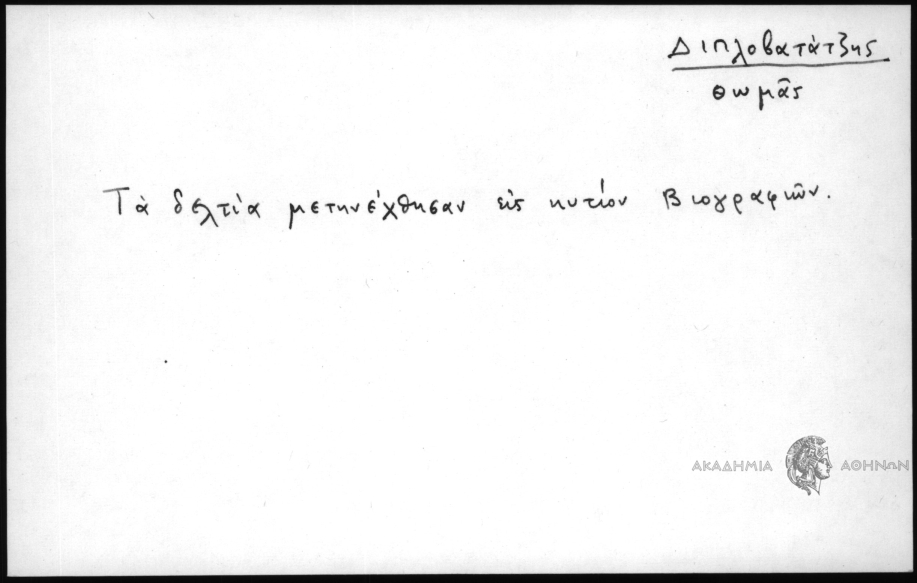 Διπλοβατάτζης
Θωμᾶς
Τὰ δελτία μετηνέχθησαν εἰς κυτίον Βιογραφιῶν.
ΑΚΑΔΗΜΙΑ ΑΘΗΝΩΝ